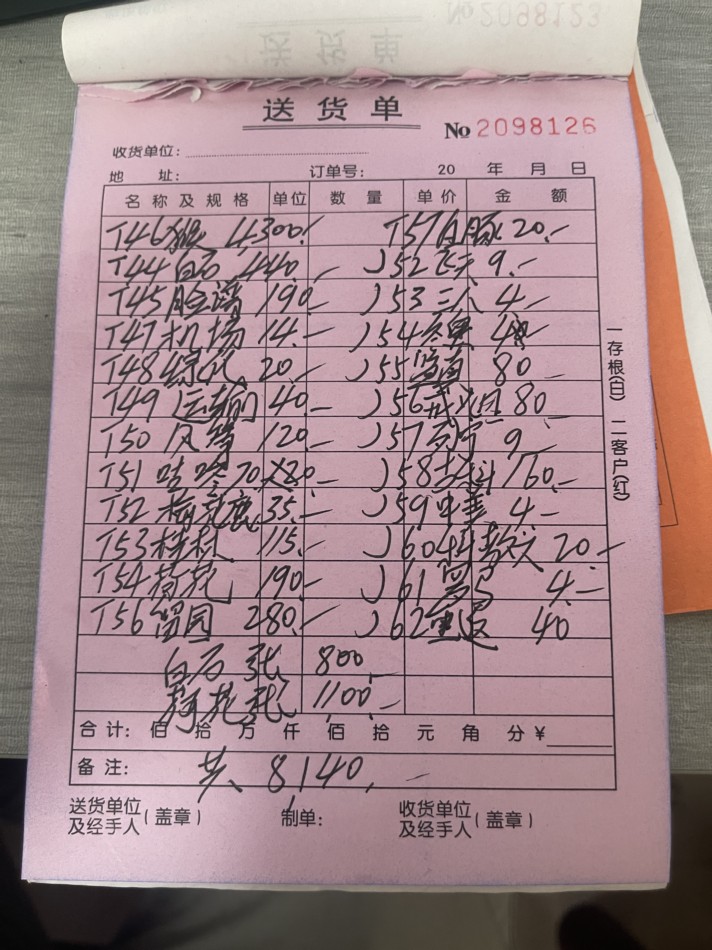 送货单
No 2098126
收货单位:
地 址: 订单号: 20 年 月 日
名称及规格 单位 数量 单价 金额
T46猴 4300.- T57白豚 20.-
T44白石 440.- J52飞天 9.-
T45脸谱 190.- J53三人 4.-
T47机场 14.- J54
T48绵化 20.- J55 80
T49运输 40.- J56戒烟 80.-
T50风筝 120.- J57列宁 9.-
T51咕咚 70 J58 160.-
T52梅花鹿 35.- J59中美 4.-
T53桂林 115.- J60 20.-
T54荷花 190.- J61 4.-
T56留园 280.- J62 40
白石张 800.-
荷花张 1100.-
合计: 佰 拾 万 仟 佰 拾 元 角 分 ¥
备注: 共 8140.-
送货单位及经手人(盖章) 制单: 收货单位及经手人(盖章)
一存根(白) 二客户(红)